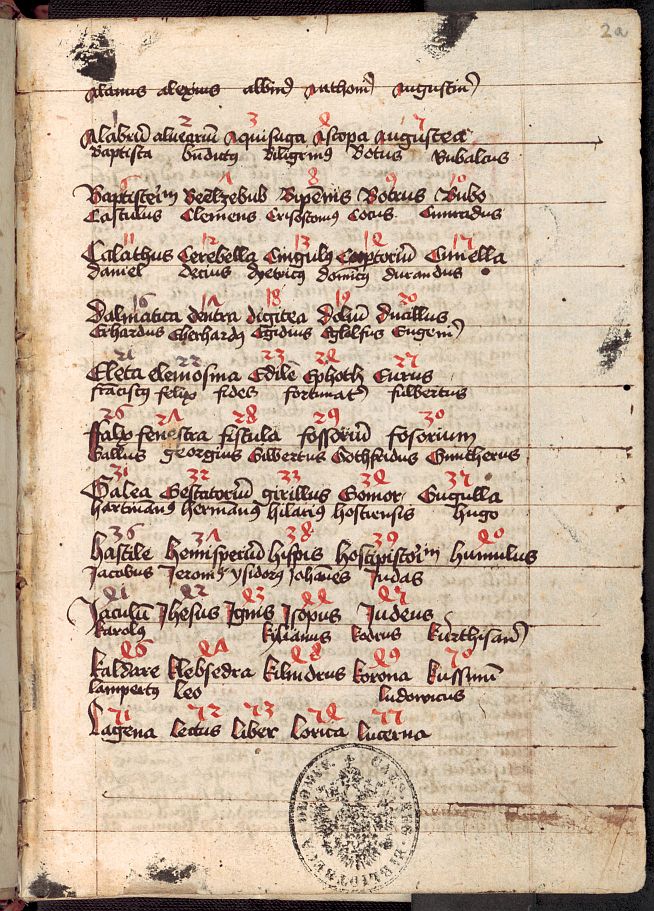 2a
Alanus alexius albinus Anthonius Augustinus
1 2 3 4 5
Alabrum alvearium Aquisuga Ascopa augustea
Baptista Benedictus Biligrinus Botus Bubalcus
6 7 8 9 10
Baptisterium Beelzebub Bipennis Botrus Bubo
Castulus Clemens Crisostomus Cottus Cunradus
11 12 13 14 15
Calathus Cerebella Cingulus Cooptorium Cuniella
Daniel Decius Dominicus Durandus
16 17 18 19 20
Dalmatica dentra digitea Dolium Ducillus
Erhardus Eberhardus Egidius Eglolfus Eugenius
21 22 23 24 25
Eleta elemosina Edile Ephoth Eurus
felix fides fortunatus fulbertus
26 27 28 29 30
Falx fenestra fistula fossorium fosorium
Gallus georgius Gilbertus Gothfridus Guntherus
31 32 33 34 35
Galea Gestatorium girillus Gomor Gugulla
hartmanus hermanus hilarius hostiensis hugo
36 37 38 39 40
hastile hemisperium hispis hostipistorium humulus
Jacobus Jeronimus ysidorus Johannes Judas
41 42 43 44 45
Jaculum Jhesus Ignis Isopus Judeus
karolus kylianus kodrus
46 47 48 49 50
kaldare klebsedra kilindrus korona kussinum
lampertus leo ludowicus
51 52 53 54 55
Lagena lectus liber lorica lucerna